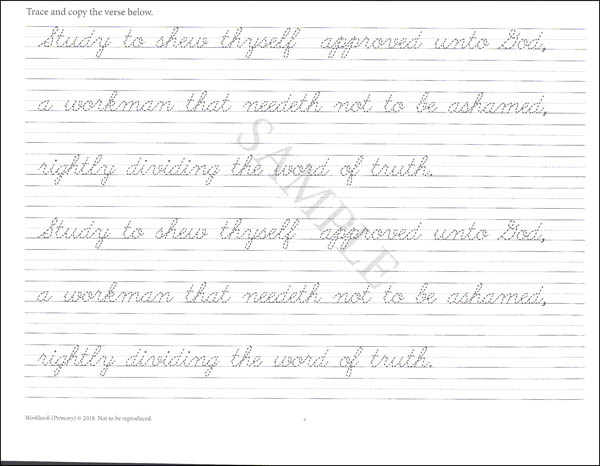 Trace and copy the verse below.
Study to shew thyself approved unto God,
a workman that needeth not to be ashamed,
rightly dividing the word of truth.
SAMPLE
Study to shew thyself approved unto God,
a workman that needeth not to be ashamed,
rightly dividing the word of truth.
Workbook (Primary) © 2018 Not to be reproduced.
4